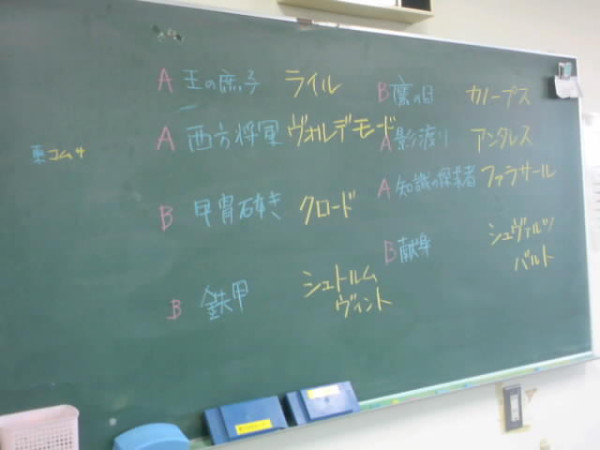 A 王の庶子 ライル
A 西方将軍 ヴォルデモード
B 甲冑砕き クロード
B 鉄甲 シュトルム
ヴィント
B 鷹の目 カノープス
A 影渡り アンタレス
A 知識の探求者 ファラサール
B 献身 シュヴァルツ
バルト